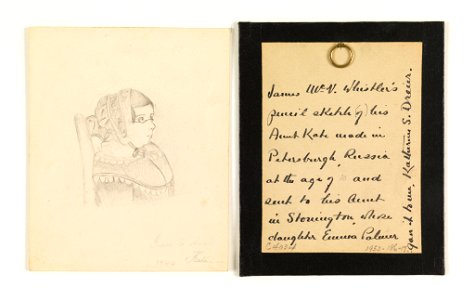 1844
James McN. Whistler's
pencil sketch (of) his
Aunt Kate made in
Petersburgh, Russia
at the age of 10 and
sent to his Aunt
in Stonington whose
daughter Emma Palmer
gave it to me, Katherine S. Dreier.